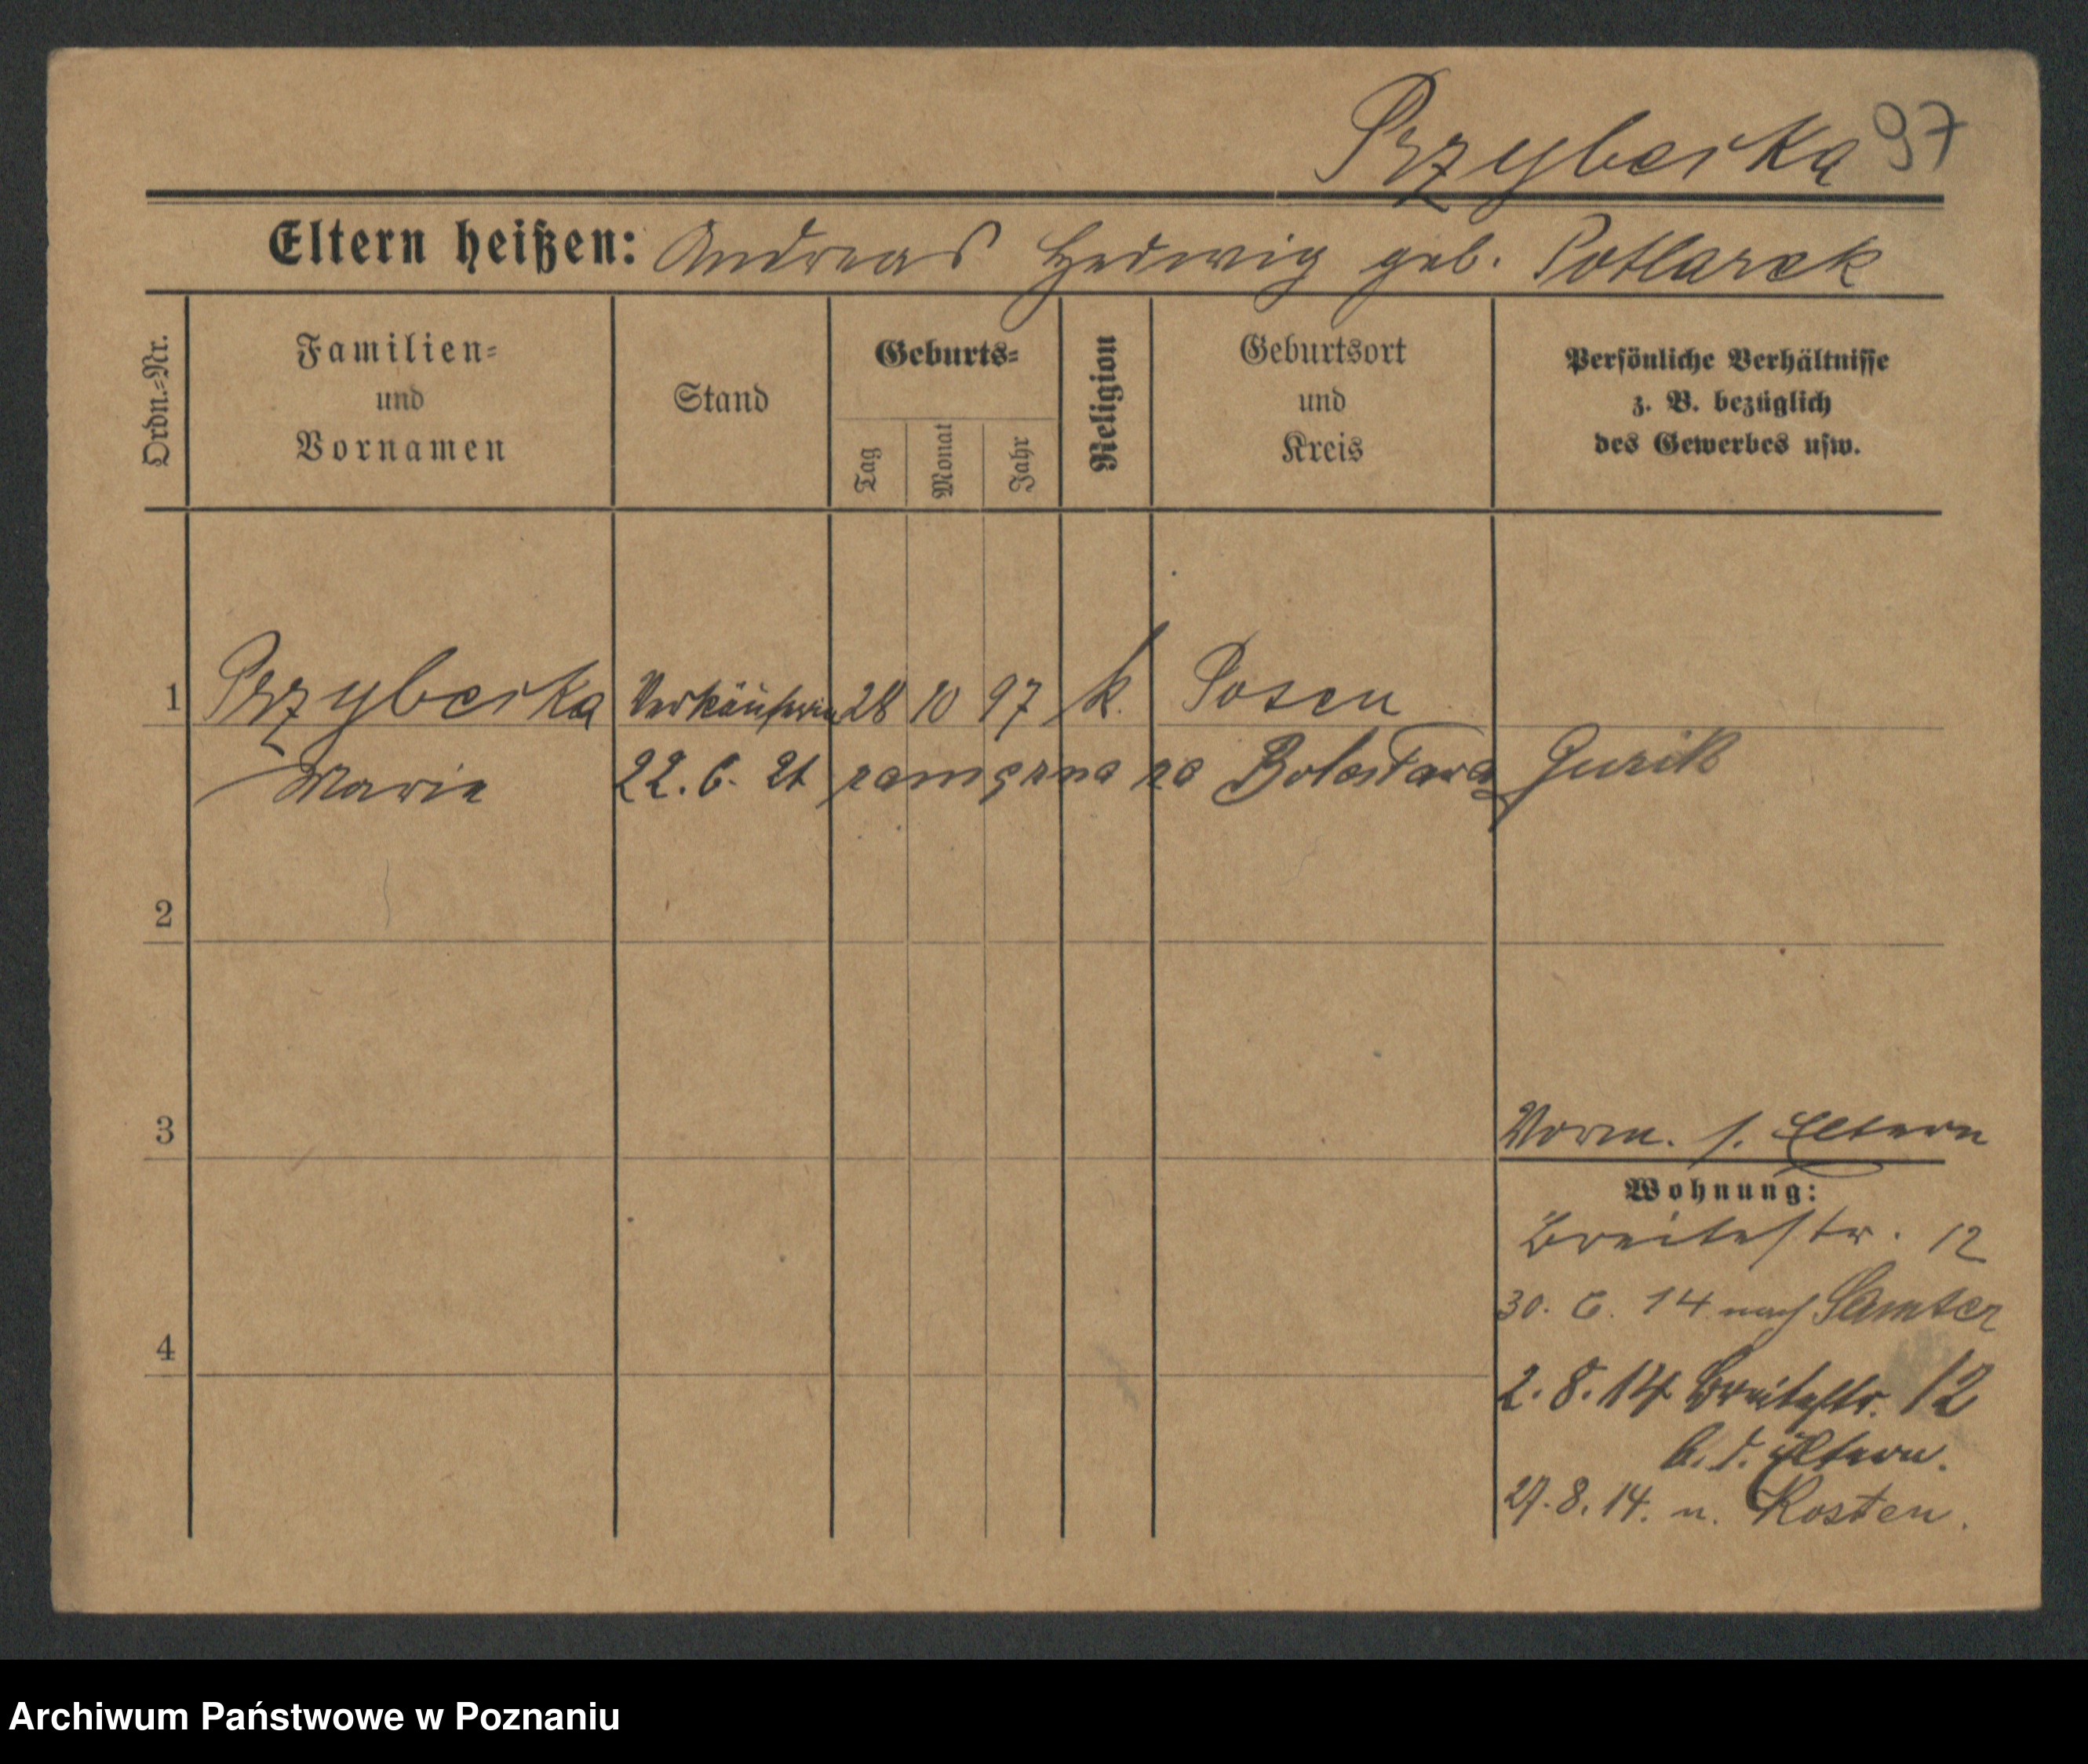 Przybeska 97
Eltern heißen: Andreas Hedwig geb. Potlarek
Ordn.=Nr.
Familien=
und
Vornamen
Stand
Geburts=
Tag
Monat
Jahr
Religion
Geburtsort
und
Kreis
Persönliche Verhältnisse
z. B. bezüglich
des Gewerbes usw.
1 Przybeska Verkäuferin 28 10 97 k. Posen
Marie 22. 6. 21 zamężna za Bolesława
2
3
Vorm. s. Eltern
Wohnung:
Breitestr. 12
30. 6. 14 nach Samter
4
2. 8. 14 Breitestr. 12
b. d. Eltern.
27. 8. 14. n. Kosten.
Archiwum Państwowe w Poznaniu